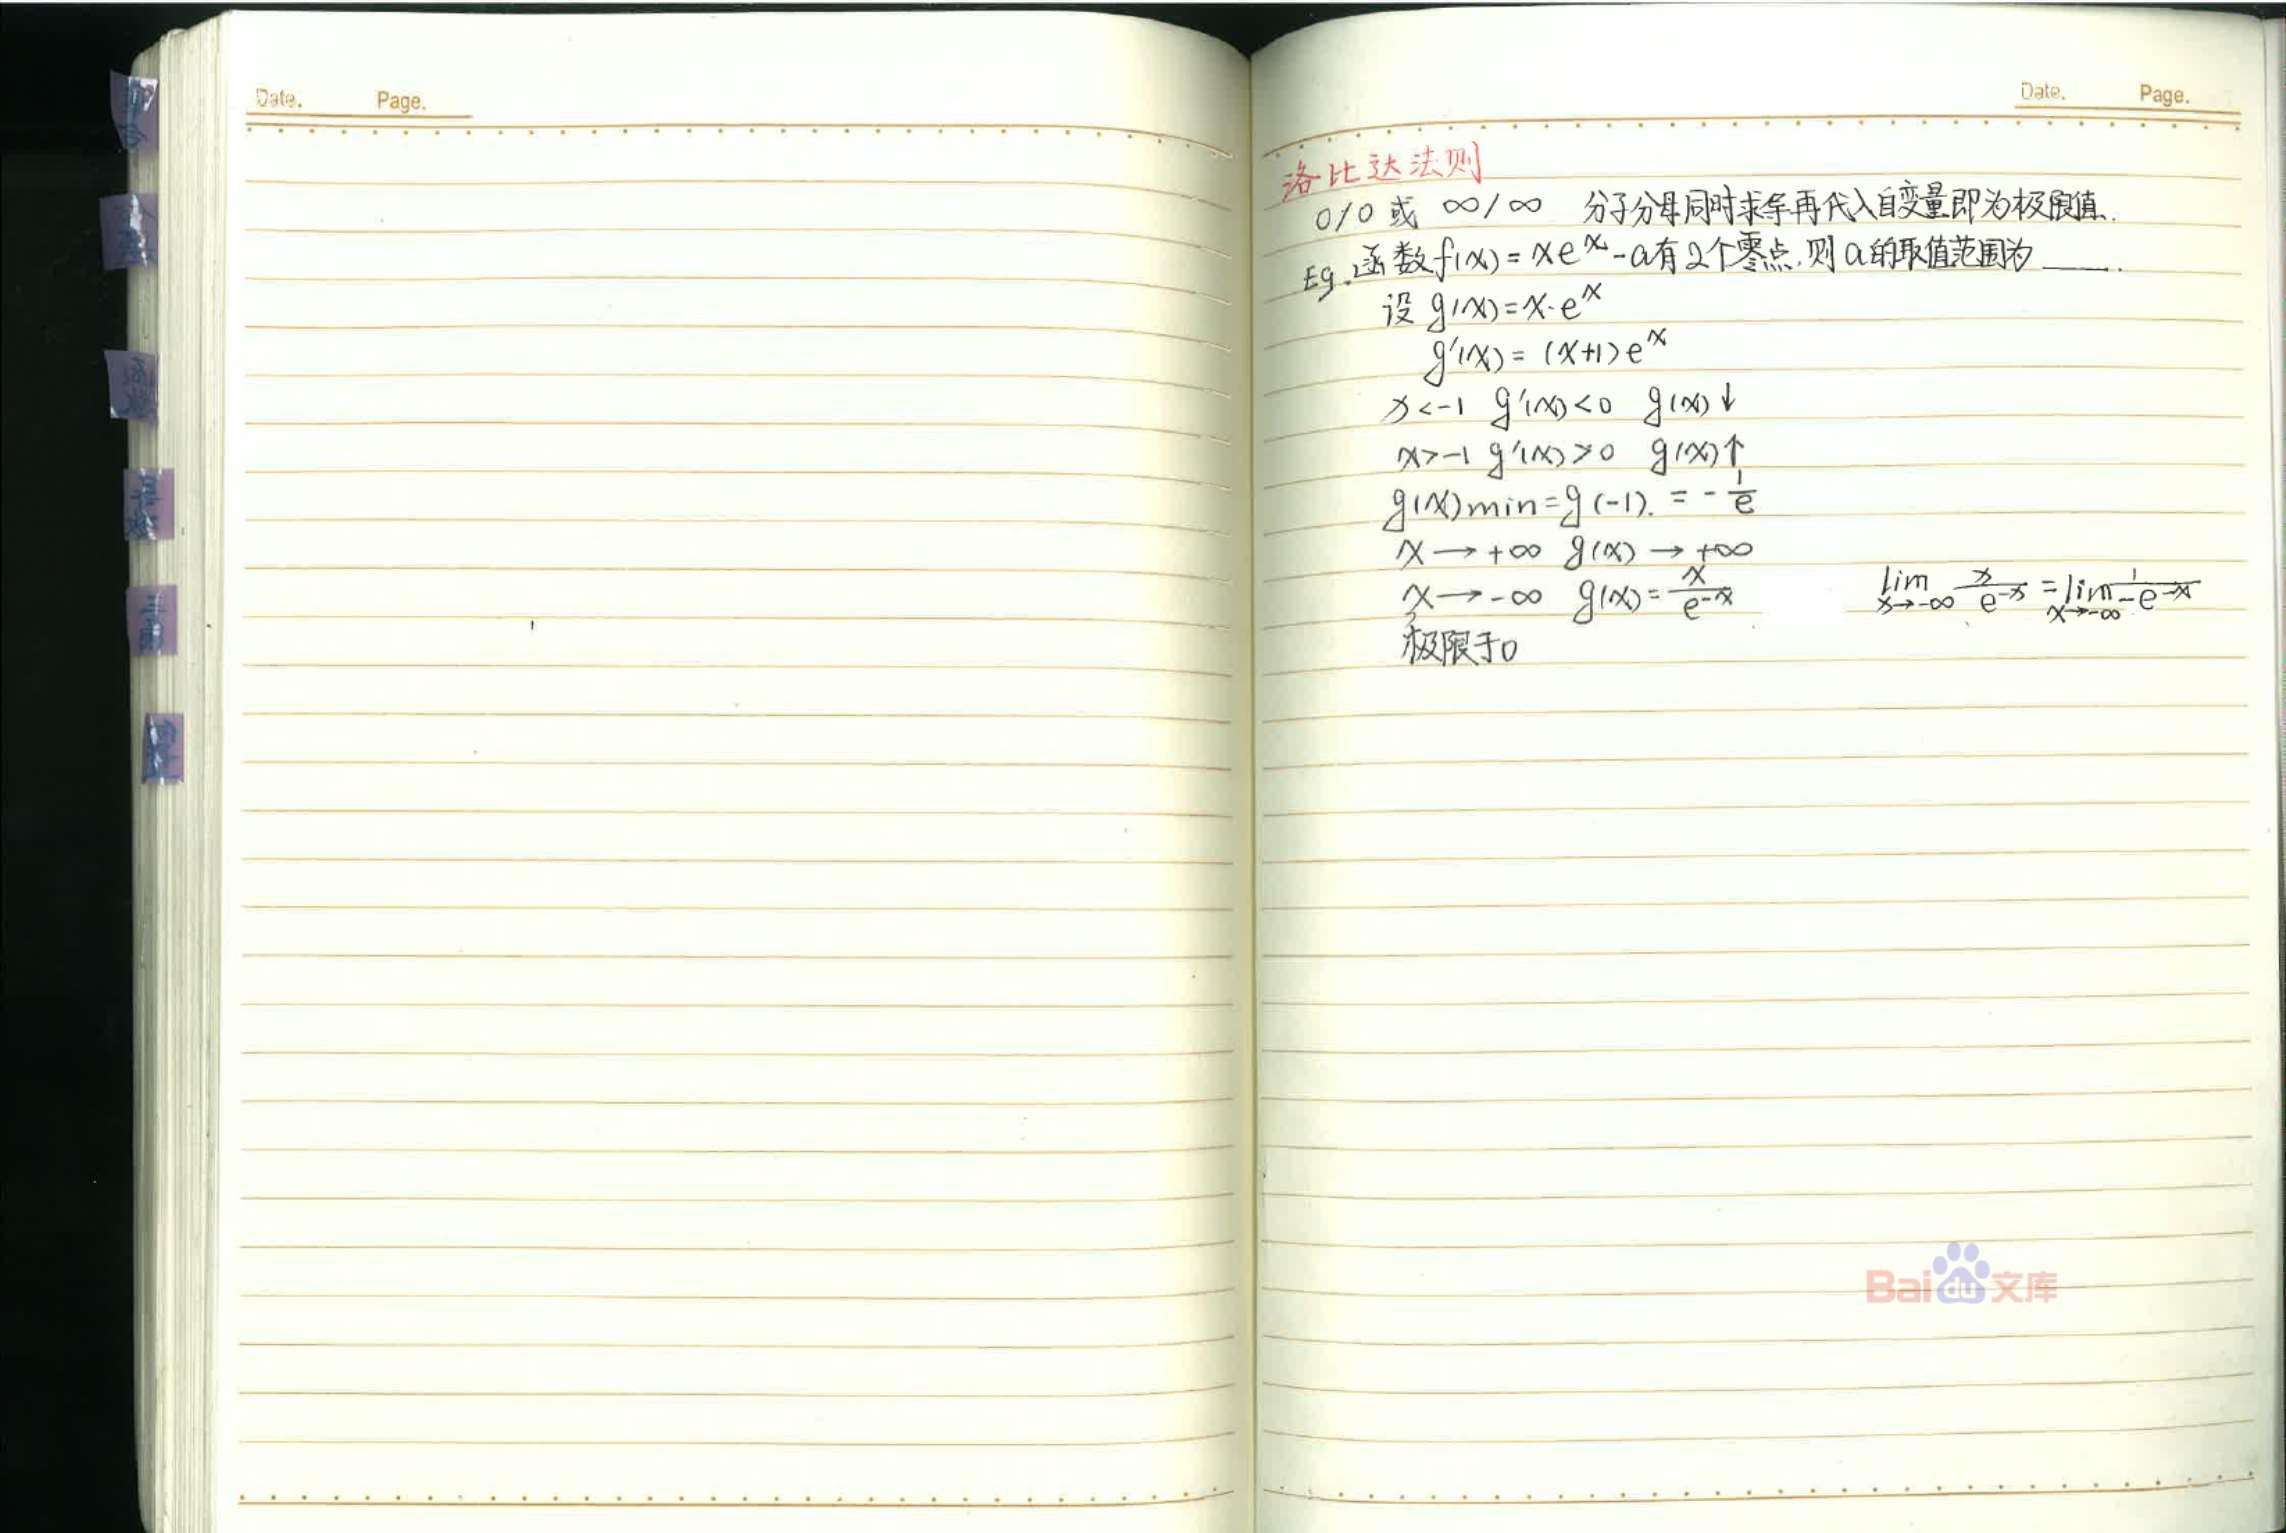 Date. Page.
Date. Page.
洛比达法则
0/0 或 ∞/∞ 分子分母同时求导再代入自变量即为极限值.
Eg. 函数f(x)=xe^x-a有2个零点.则a的取值范围为____.
设 g(x)=x·e^x
g'(x)=(x+1)e^x
x<-1 g'(x)<0 g(x)↓
x>-1 g'(x)>0 g(x)↑
g(x)min=g(-1).=-1/e
x→+∞ g(x)→+∞
x→-∞ g(x)=x/e^-x lim x→-∞ x/e^-x = lim x→-∞ 1/-e^-x
极限于0
函数
导数
三角
Baidu文库